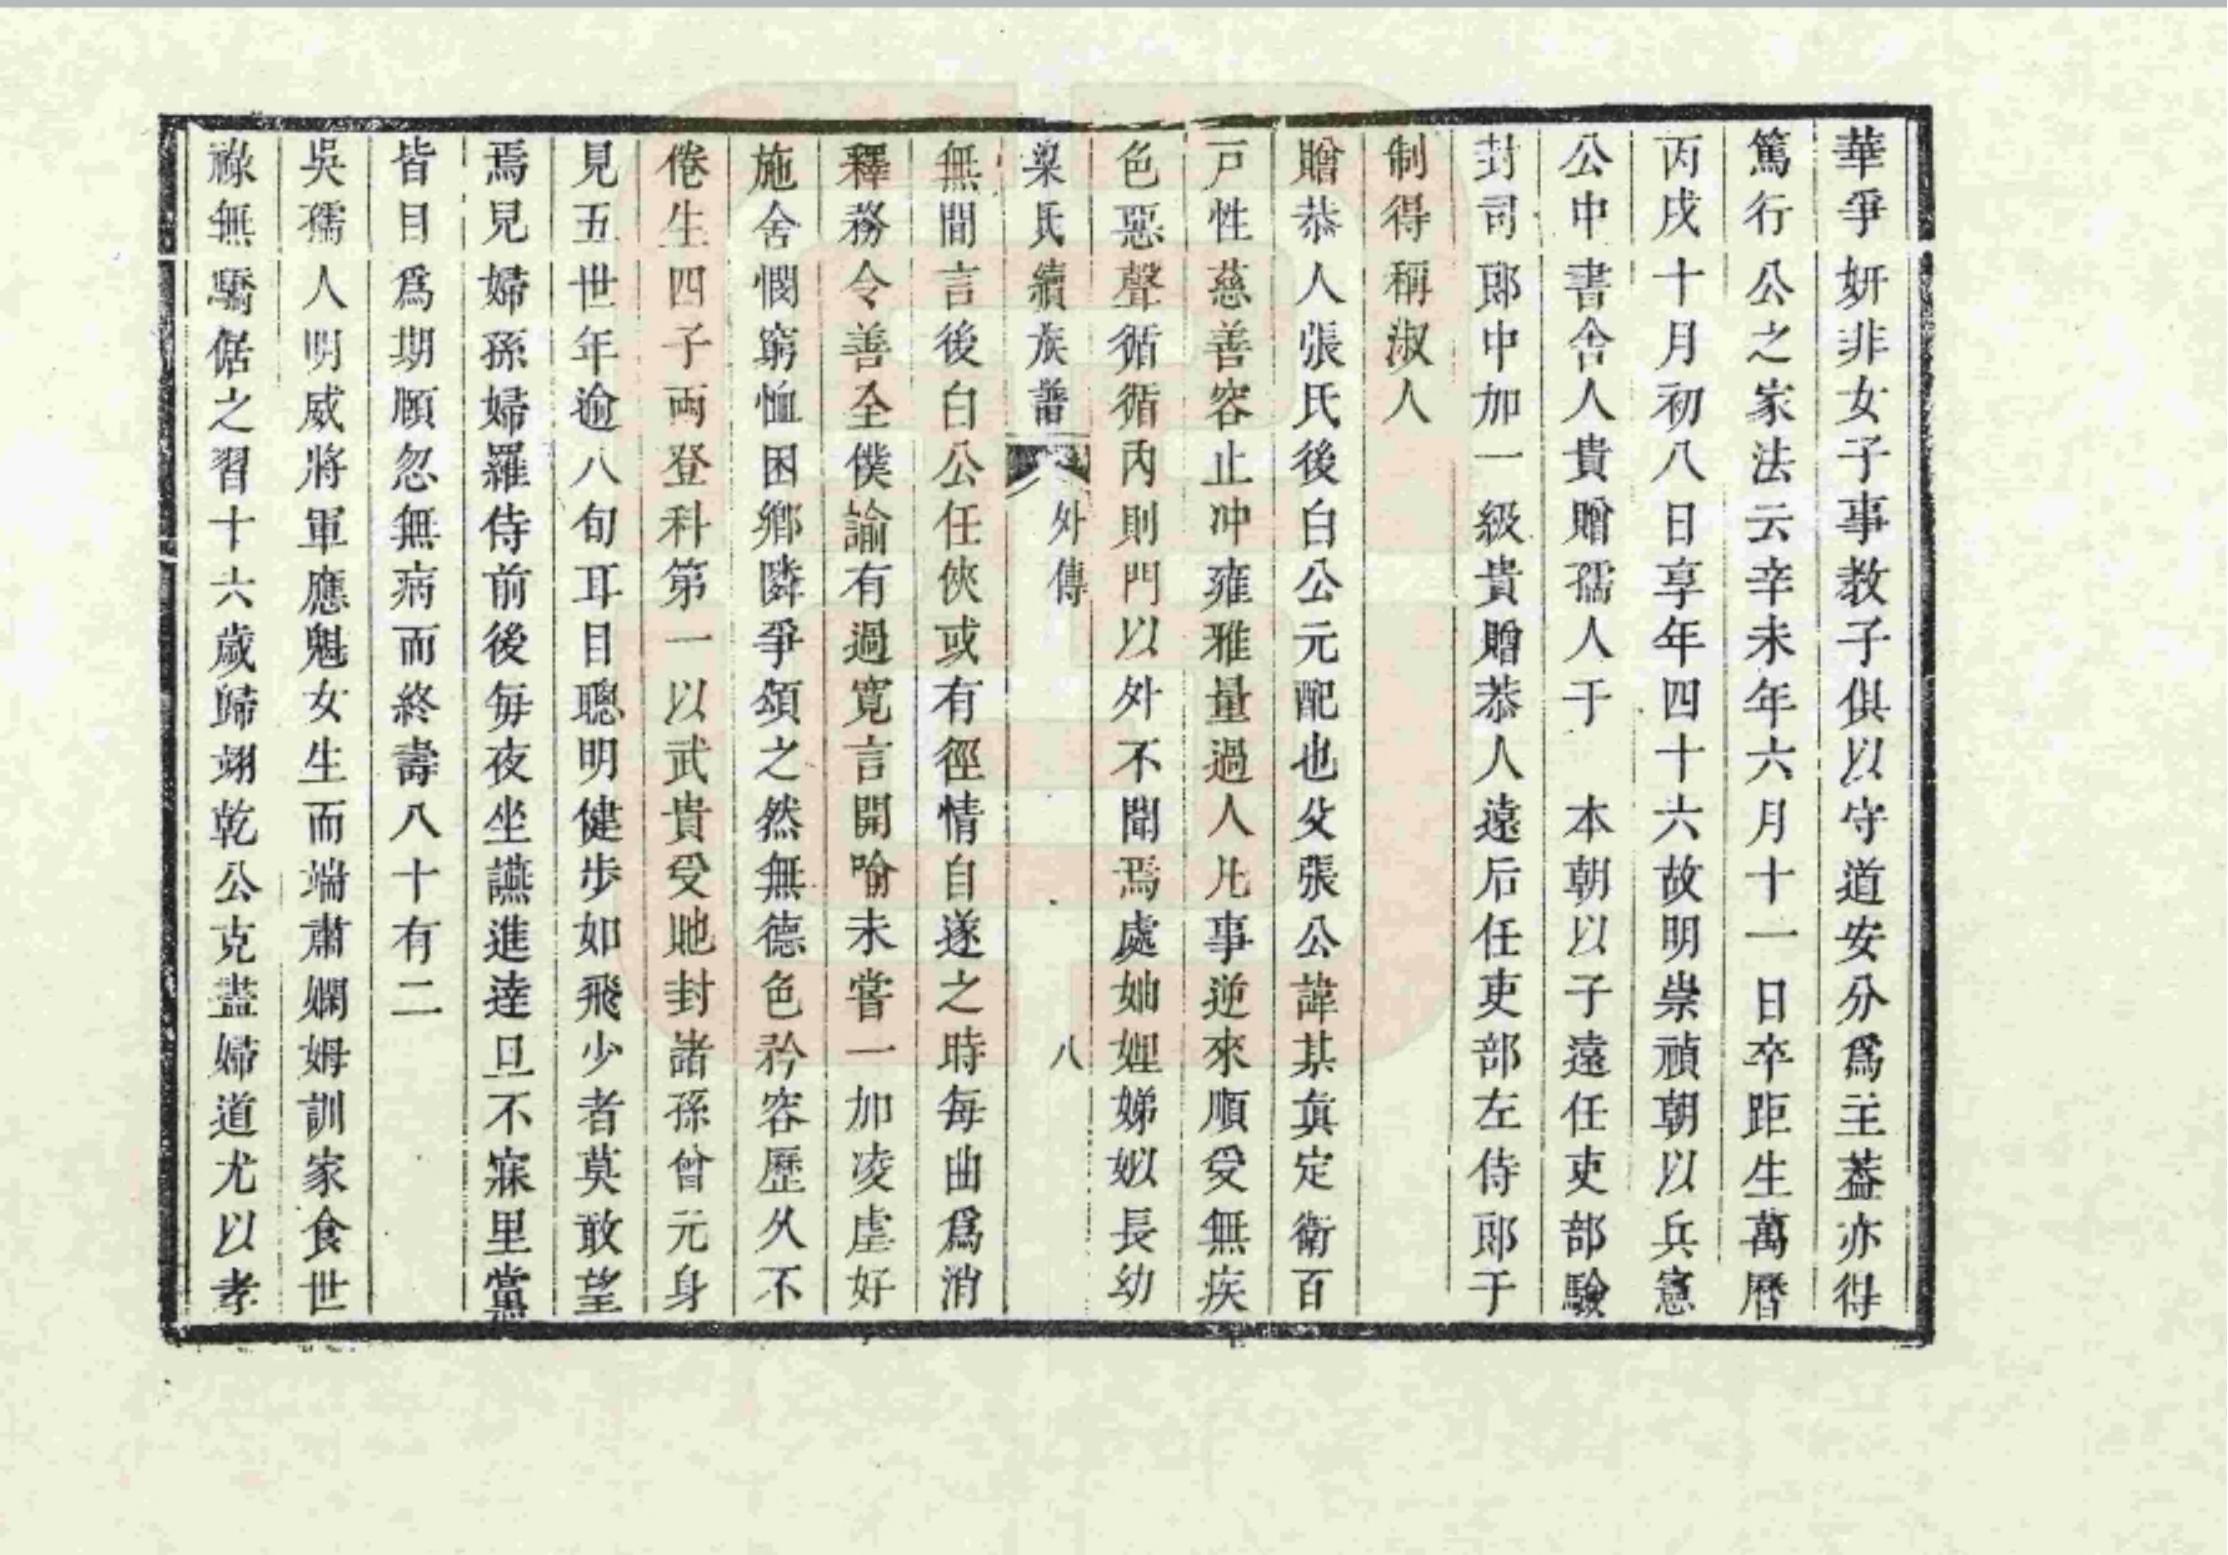 華爭妍非女子事教子俱以守道安分爲主葢亦得
篤行公之家法云辛未年六月十一日卒距生萬曆
丙戌十月初八日享年四十六故明崇禎朝以兵憲
公中書舍人貴贈孺人于　本朝以子遠任吏部驗
封司郎中加一級貴贈恭人遠后任吏部左侍郎于
制得稱淑人
贈恭人張氏後白公元配也父張公諱某眞定衛百
戸性慈善容止冲雍雅量過人凡事逆來順受無疾
色惡聲循循內則門以外不聞焉處妯娌娣姒長幼
梁氏續族譜　外傳　八
無間言後白公任俠或有徑情自遂之時每曲爲消
釋務令善全僕諭有過寬言開喻未嘗一加凌虐好
施舍憫窮恤困鄉隣爭頌之然無德色矜容歷久不
倦生四子両登科第一以武貴受貤封諸孫曾元身
見五世年逾八旬耳目聰明健步如飛少者莫敢望
焉見婦孫婦羅侍前後每夜坐讌進逹旦不寐里黨
皆目爲期頤忽無病而終壽八十有二
吳孺人明威將軍應魁女生而端肅嫻姆訓家食世
祿無驕倨之習十六歲歸翊乾公克盡婦道尤以孝